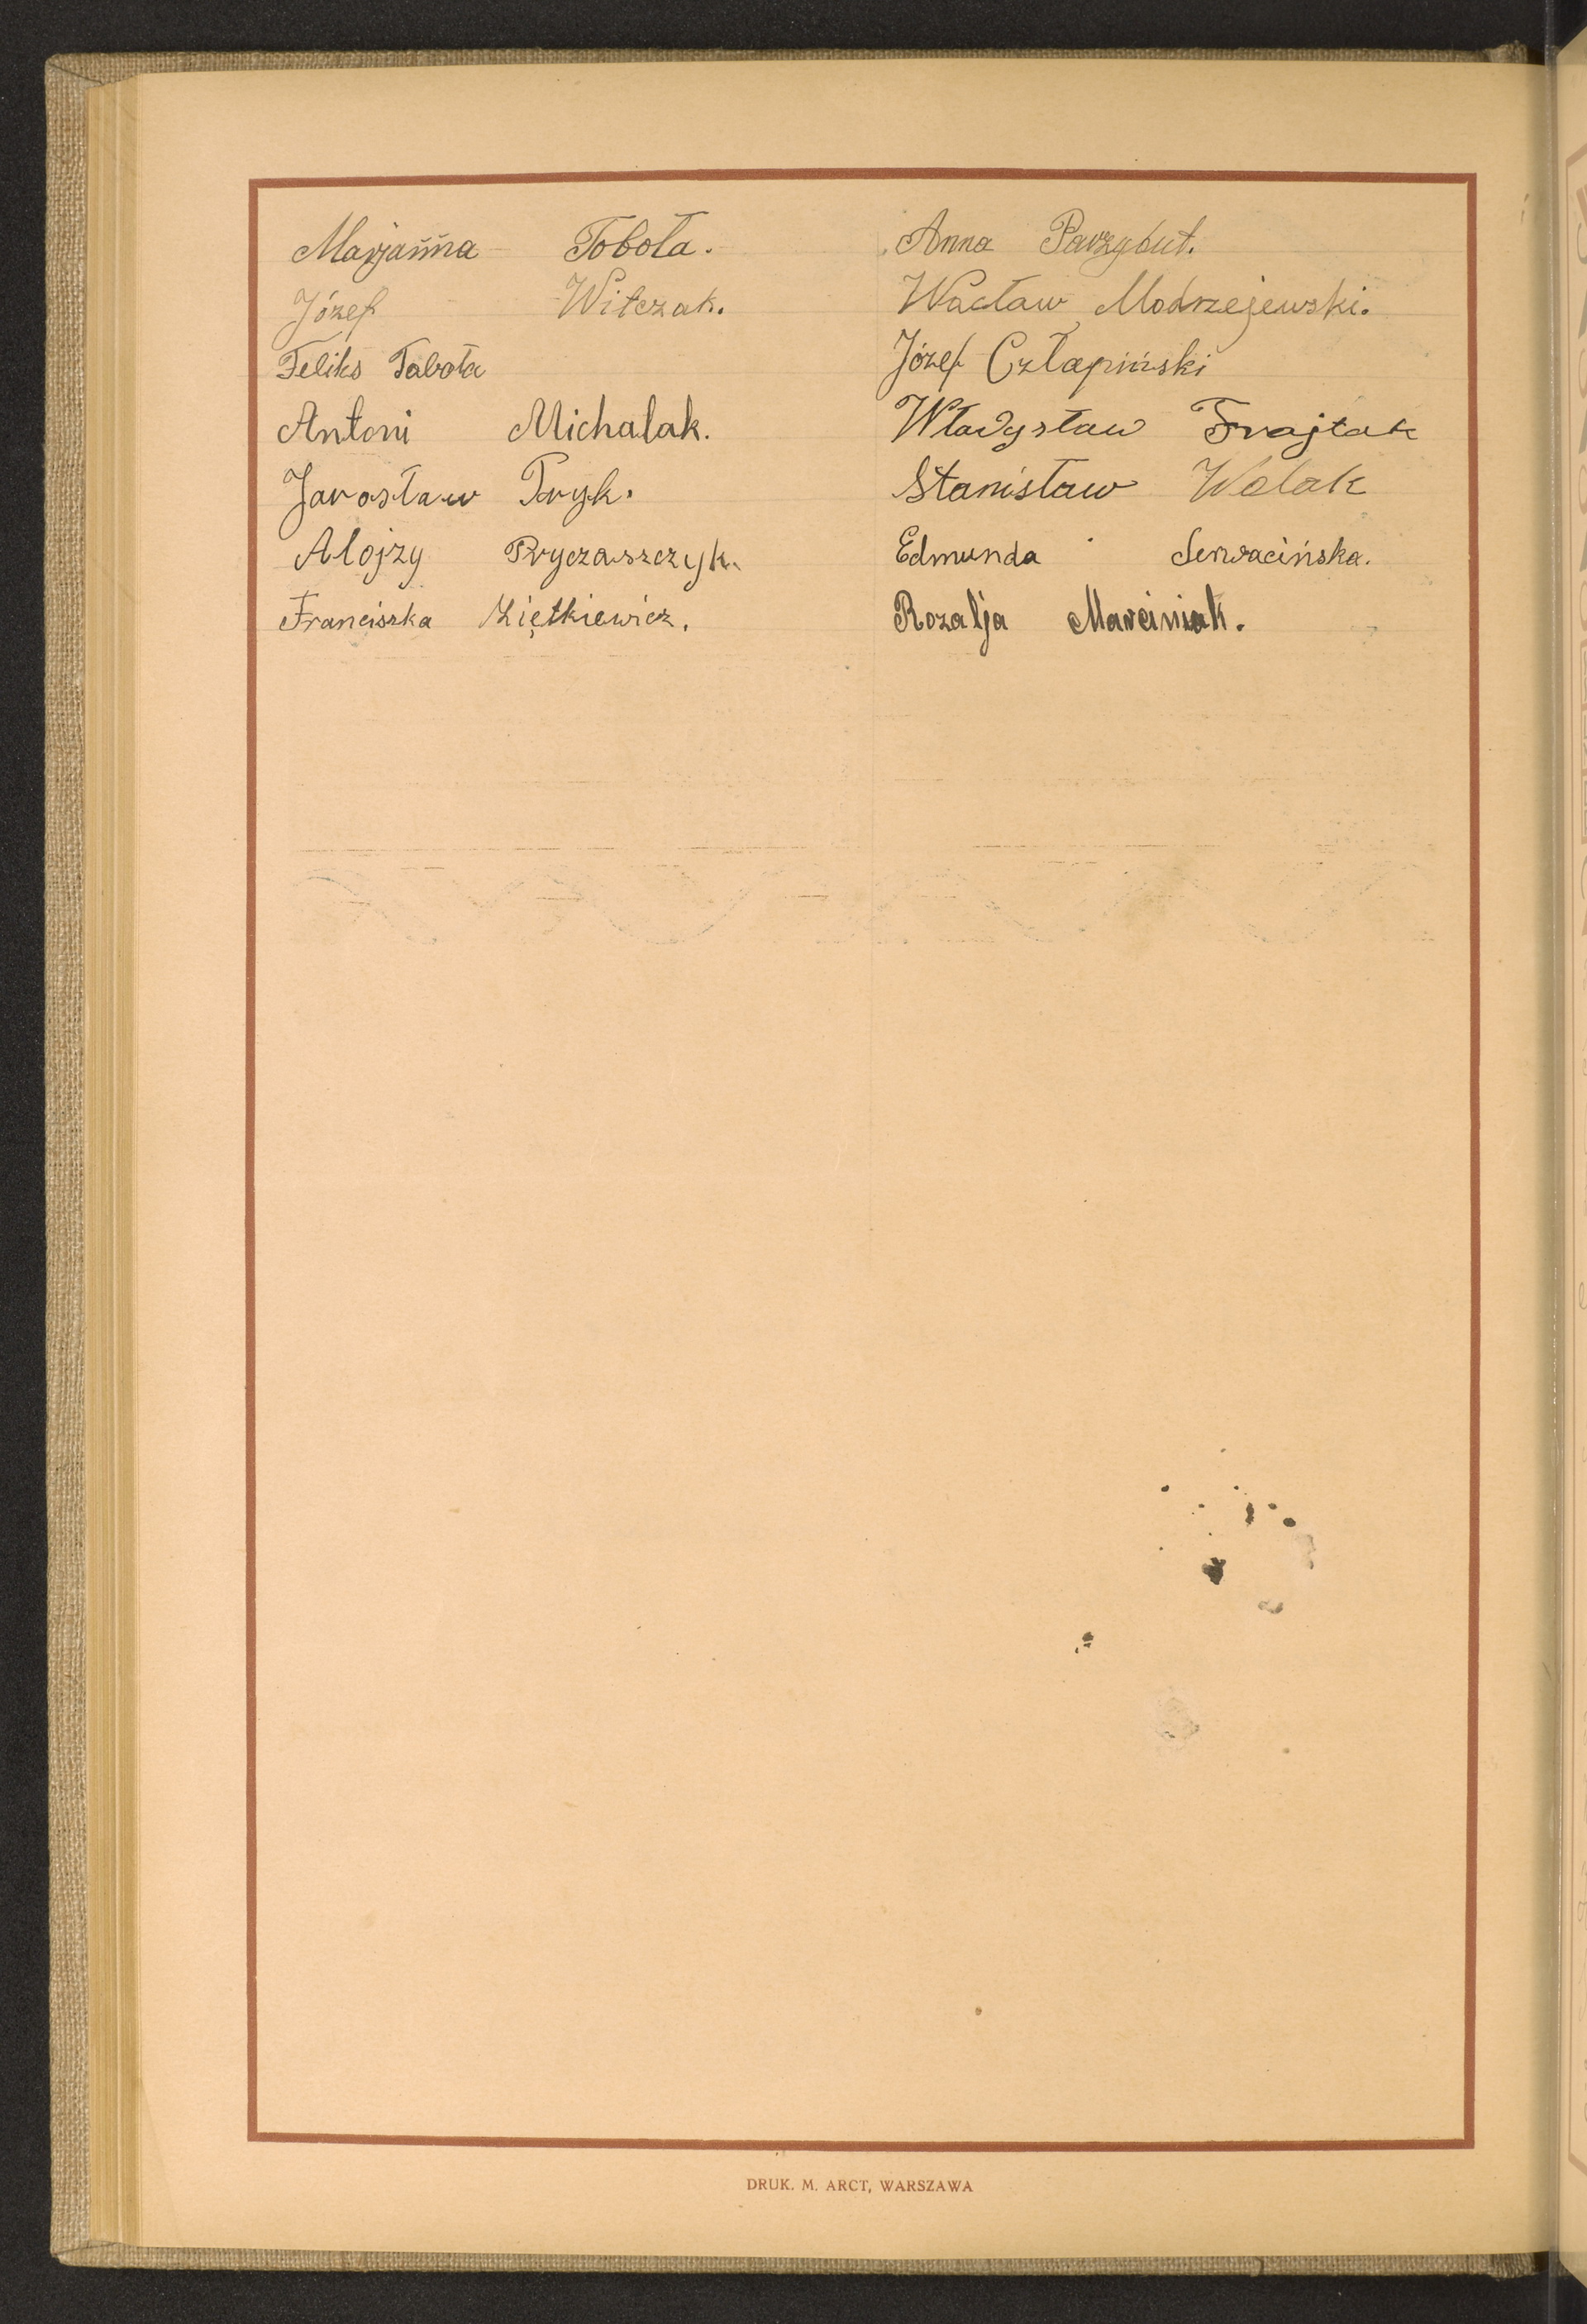 Marjanna Tobola.
Józef Witczak.
Feliks Tabota
Antoni Michalak.
Jarosław Pryk.
Alojzy Pryczaszczyk.
Franciszka Ziętkiewicz.
Anna Parzybut.
Wacław Modrzejewski.
Józef Człapiński
Władysław Frajtak
Stanisław Walak
Edmunda Serwacińska.
Rozalja Marciniak.
DRUK. M. ARCT, WARSZAWA